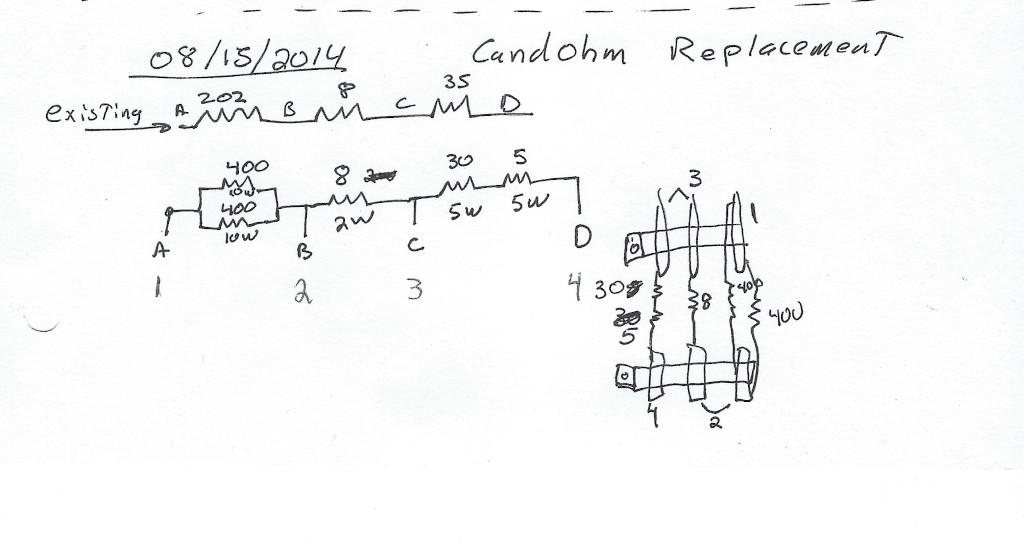 08/15/2014 Candohm Replacement
existing A 202 B 8 C 35 D
400 8 30 5
10W
400 2W 5W 5W
10W
A B C D
1 2 3 4
3 1
30 8 400 400
5
4 2